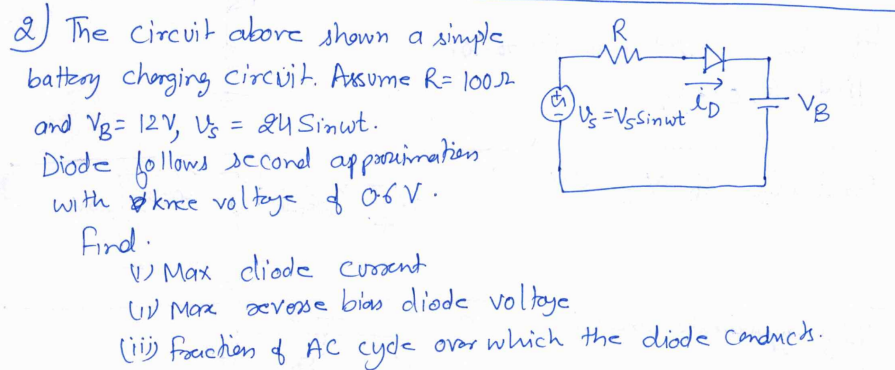 2) The circuit above shown a simple
battery charging circuit. Assume R= 100Ω
and VB= 12V, Vs = 24 Sinωt.
Diode follows second approximation
with knee voltage of 0.6 V.
Find.
(i) Max diode current
(ii) Max reverse bias diode voltage
(iii) fraction of AC cycle over which the diode conducts.
R
iD
Vs=VsSinωt
VB
+
-